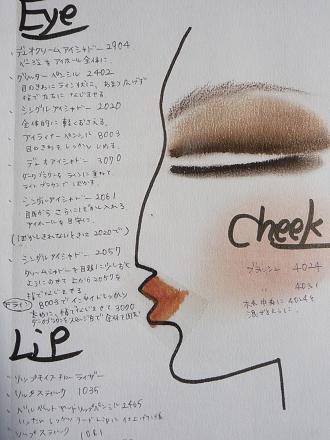 Eye
・デュオクリームアイシャドー 2904
ベージュをアイホール全体に
・グリッターペンシル 2402
目のきわにライン状に、あまり広げず
指でたたきなじませる
・シングルアイシャドー 2020
全体的に軽くおさえる
・アイライナーペンシル 8003
目のきわをしっかりしめる
・デュオアイシャドー 3090
ダークブラウンをラインに重ねて
ライトブラウンでぼかす
・シングルアイシャドー 2061
目尻から
アイホールを目安に
2020で
・シングルアイシャドー 2057
クリームシャドーを目頭に少しおく
ようにのせて上から2057を
指でなじませる
8003でインサイドしっかり
ために、指でなじませて3090
ダークブラウンを
cheek
ブラッシュ 4024
4031
Lip
・リップモイスチャーライザー
・リップスティック 1035
・ベルベットヤードリップペンシル 2465
・リップスティック 1061